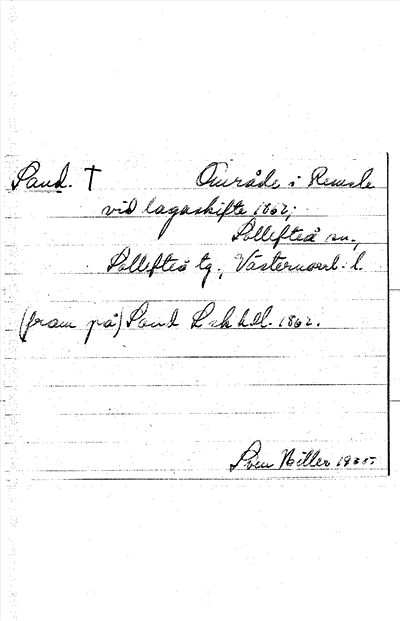 Sand. † Område i Remsle
vid lagaskifte 1862;
Sollefteå sn.,
Sollefteå tg., Västernorrl. l.
(fram på) Sand L sk hdl. 1862.
Sven Hiller 1935